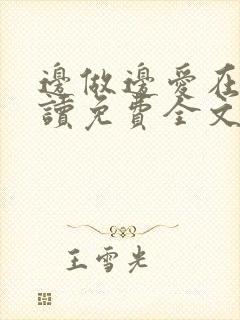 邊做邊愛在
讀免費全文
王雪光